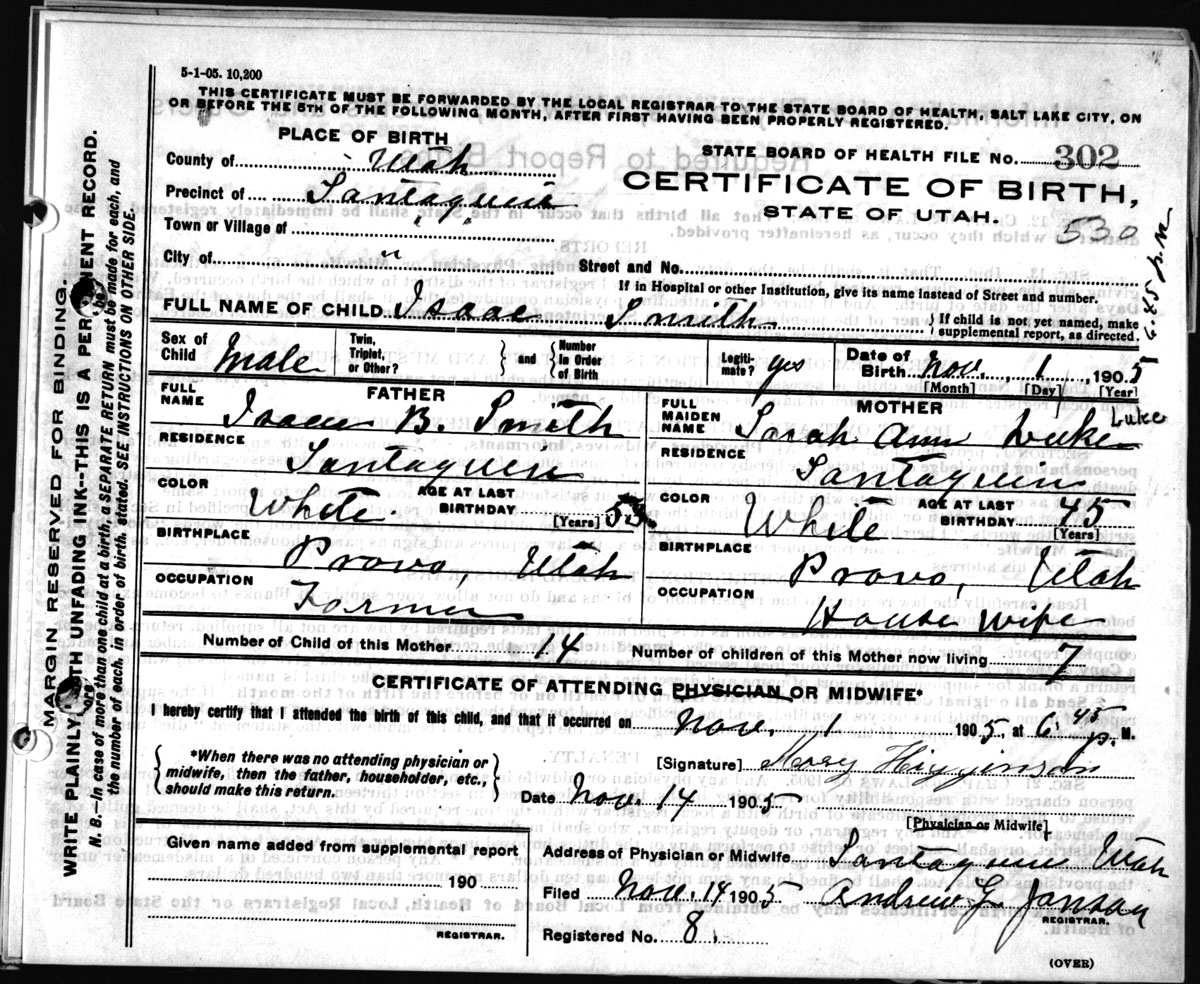 5-1-05. 10,200
THIS CERTIFICATE MUST BE FORWARDED BY THE LOCAL REGISTRAR TO THE STATE BOARD OF HEALTH, SALT LAKE CITY, ON
OR BEFORE THE 5TH OF THE FOLLOWING MONTH, AFTER FIRST HAVING BEEN PROPERLY REGISTERED.
PLACE OF BIRTH
STATE BOARD OF HEALTH FILE NO. 302
County of Utah
CERTIFICATE OF BIRTH,
Precinct of Santaquin
STATE OF UTAH.
Town or Village of " "
530
City of "
Street and No.
If in Hospital or other Institution, give its name instead of Street and number.
FULL NAME OF CHILD Isaac Smith
} If child is not yet named, make
supplemental report, as directed.
6.45 p.m
Sex of Child Male
Twin, Triplet, or Other? } and { Number In Order of Birth
Legiti-mate? yes
Date of Birth Nov. 1, 1905
[Month] [Day] [Year]
FATHER
FULL NAME Isaac B. Smith
RESIDENCE Santaquin
COLOR White
AGE AT LAST BIRTHDAY 53 [Years]
BIRTHPLACE Provo, Utah
OCCUPATION Farmer
MOTHER
FULL MAIDEN NAME Sarah Ann Luke
Luke
RESIDENCE Santaquin
COLOR White
AGE AT LAST BIRTHDAY 45 [Years]
BIRTHPLACE Provo, Utah
OCCUPATION House wife
Number of Child of this Mother 14
Number of children of this Mother now living 7
CERTIFICATE OF ATTENDING PHYSICIAN OR MIDWIFE*
I hereby certify that I attended the birth of this child, and that it occurred on Nov. 1 1905, at 6.45 p. M.
{ *When there was no attending physician or midwife, then the father, householder, etc., should make this return. }
[Signature] Mary Higginson
Date Nov. 14 1905
[Physician or Midwife]
Given name added from supplemental report
190
REGISTRAR.
Address of Physician or Midwife Santaquin Utah
Filed Nov. 14 1905 Andrew L. Jonson
REGISTRAR.
Registered No. 8.
(OVER)
MARGIN RESERVED FOR BINDING.
WRITE PLAINLY WITH UNFADING INK--THIS IS A PERMANENT RECORD.
N. B.--In case of more than one child at a birth, a SEPARATE RETURN must be made for each, and
the number of each, in order of birth, stated. SEE INSTRUCTIONS ON OTHER SIDE.